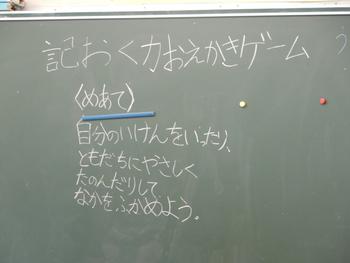 記おく力おえかきゲーム
〈めあて〉
自分のいけんをいったり、
ともだちにやさしく
たのんだりして
なかをふかめよう。